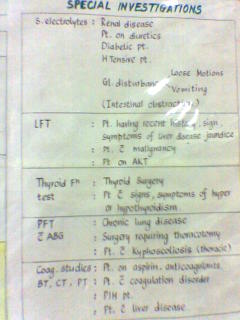 SPECIAL INVESTIGATIONS
S. electrolytes : Renal disease
Pt. on diuretics
Diabetic pt.
H Tensive pt.
GI. disturbance Loose Motions
Vomiting
(Intestinal obstruction)
LFT : Pt. having recent history, sign,
symptoms of liver disease jaundice
: Pt. c̄ malignancy
: Pt on AKT
Thyroid Fⁿ : Thyroid Surgery
test : Pt c̄ signs, symptoms of hyper
or hypothyroidism.
PFT : Chronic lung disease
c̄ ABG : Surgery requiring thoracotomy
: Pt. c̄ Kyphoscoliosis (thoracic)
Coag. studies : Pt. on aspirin, anticoagulants
BT, CT, PT : Pt. c̄ coagulation disorder
: PIH pt.
: Pt. c̄ liver disease